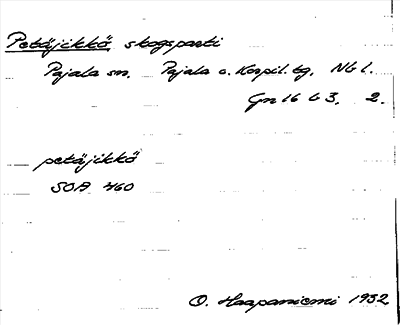 Petäjikkö, skogsparti
Pajala sn. Pajala o. Korpil. tg. Nb l.
Gn 16 b 3. 2.
petäjikkö
SOA 460
O. Haapaniemi 1932